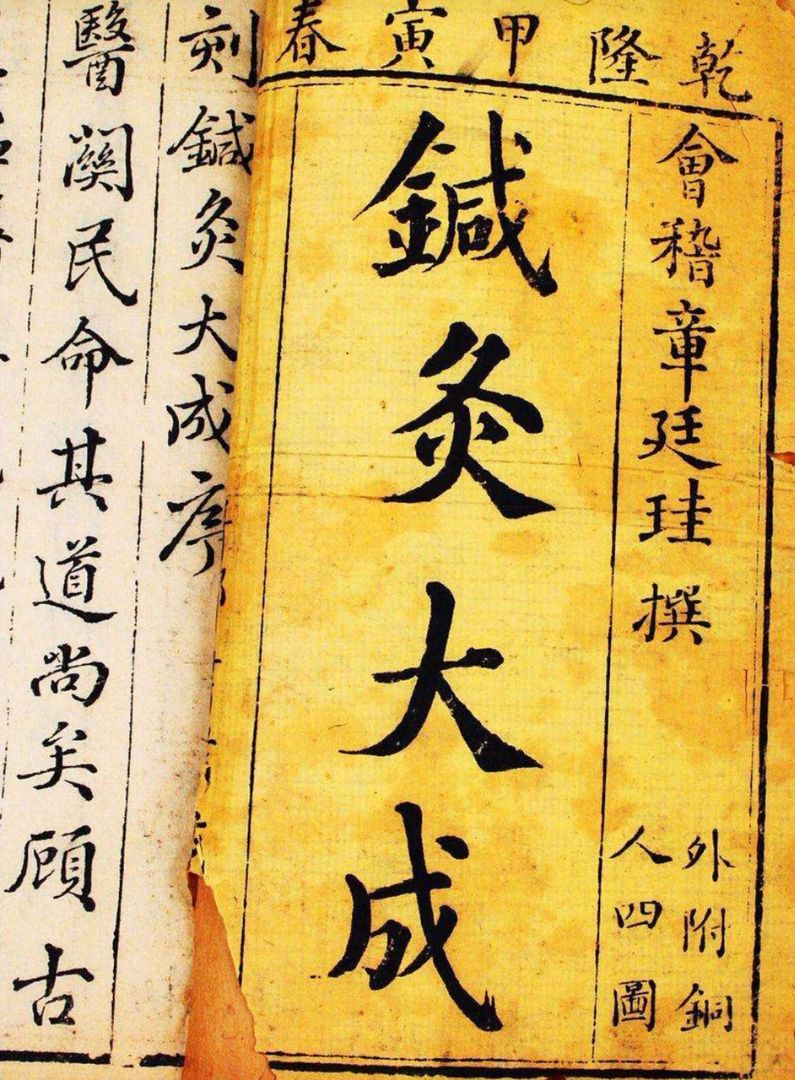 乾隆甲寅春
會稽章廷珪撰
外附銅
人四圖
鍼灸大成
刻鍼灸大成序
醫關民命其道尚矣顧古